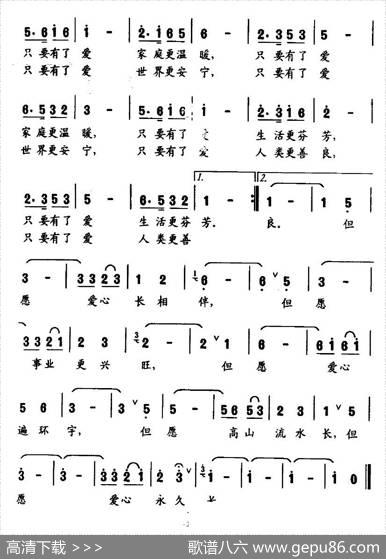 5·6i6 | i - | 2·i65 6 - | 2·353 | 5 -
只要有了 爱 家庭更温暖, 只要有了 爱
只要有了 爱 世界更安宁, 只要有了 爱
6·532 | 3 - | 2·353 | 5·6i6 | i - | 2·2i6
家庭更温暖, 只要有了 爱 生活更芬芳,
世界更安宁, 只要有了 爱 人类更善良,
2·353 | 5 - | 6·532 | 1 - :| 1 - | 1 5
1. 2.
只要有了 爱 生活更芬 芳. 良. 但
只要有了 爱 人类更善
3 - | 3 3 2 3 | 1 2 | 6 - | 6 5 | 3 -
愿 爱心 长相 伴, 但 愿
3 3 2 1 | 2 3 | 2 - | 2 1 | 6 - | 6 i 6 i
事业 更兴 旺, 但 愿 爱心
5 6 | 3 - | 3 5 | 2 - | 56 53 | 2 3 | 5
遍环 宇, 但 愿 高山 流水 长, 但
3 - | 3 - | 3 3 2 1 | 2 2 | 1 - | 1 - | 1 0 ‖
愿 爱心 永久
高清下载 >>>
歌谱八六 www.gepu86.com